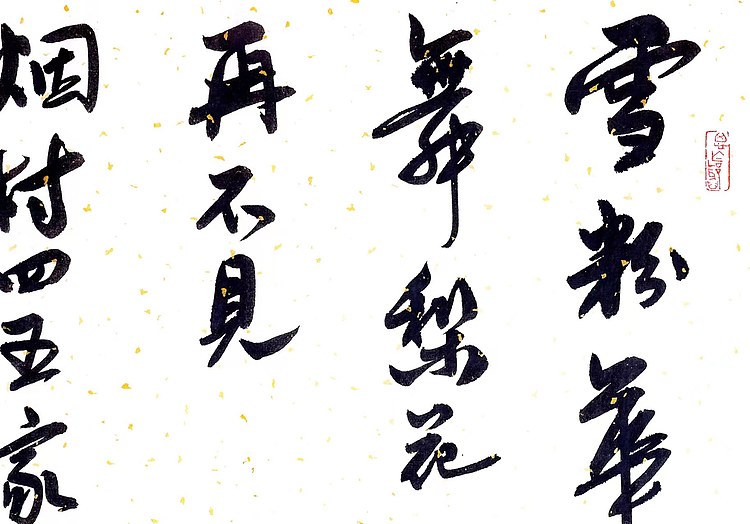 雪粉華
舞梨花
再不見
烟村四五家